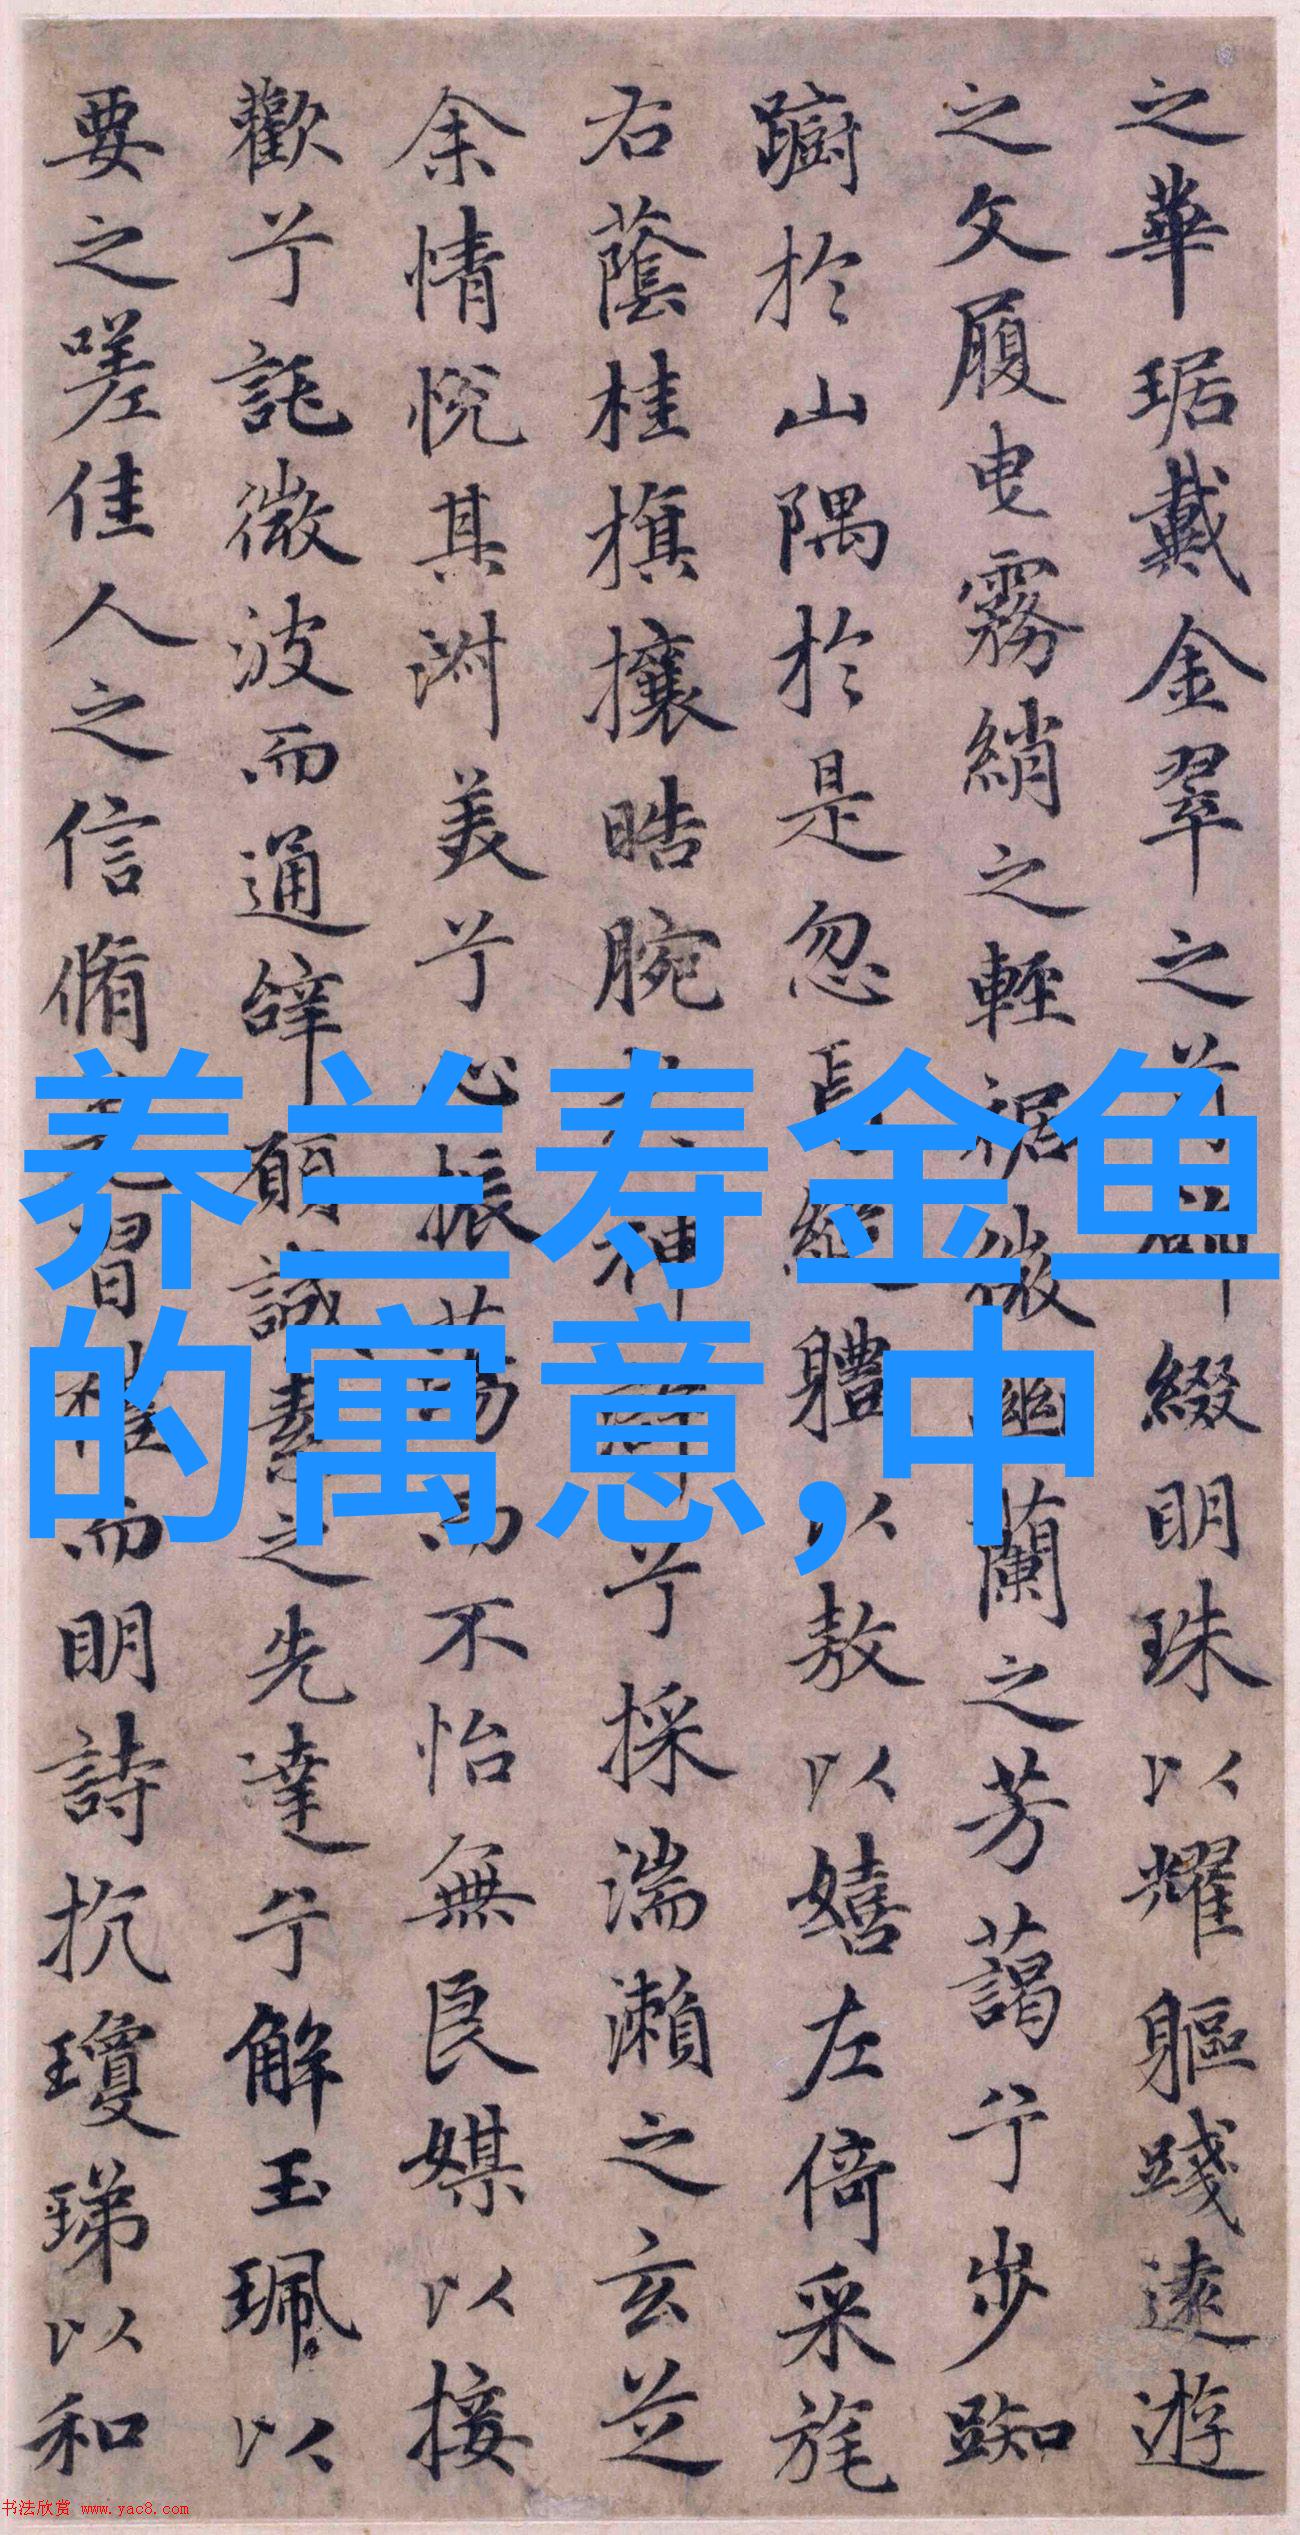 之華琚戴金翠之首飾綴明珠以耀軀踐遠遊
之文履曳霧綃之輕裾微幽蘭之芳藹兮步踟
躕於山隅於是忽焉縱體以敖以嬉左倚采旄
右蔭桂旗攘皓腕於神滸兮採湍瀨之玄芝
余情悅其淑美兮心振蕩而不怡無良媒以接
歡兮託微波而通辭願誠素之先達兮解玉珮以
要之嗟佳人之信脩羌習禮而明詩抗瓊珶以和
养兰寿金鱼
的寓意,中
书法欣赏 www.yac8.com